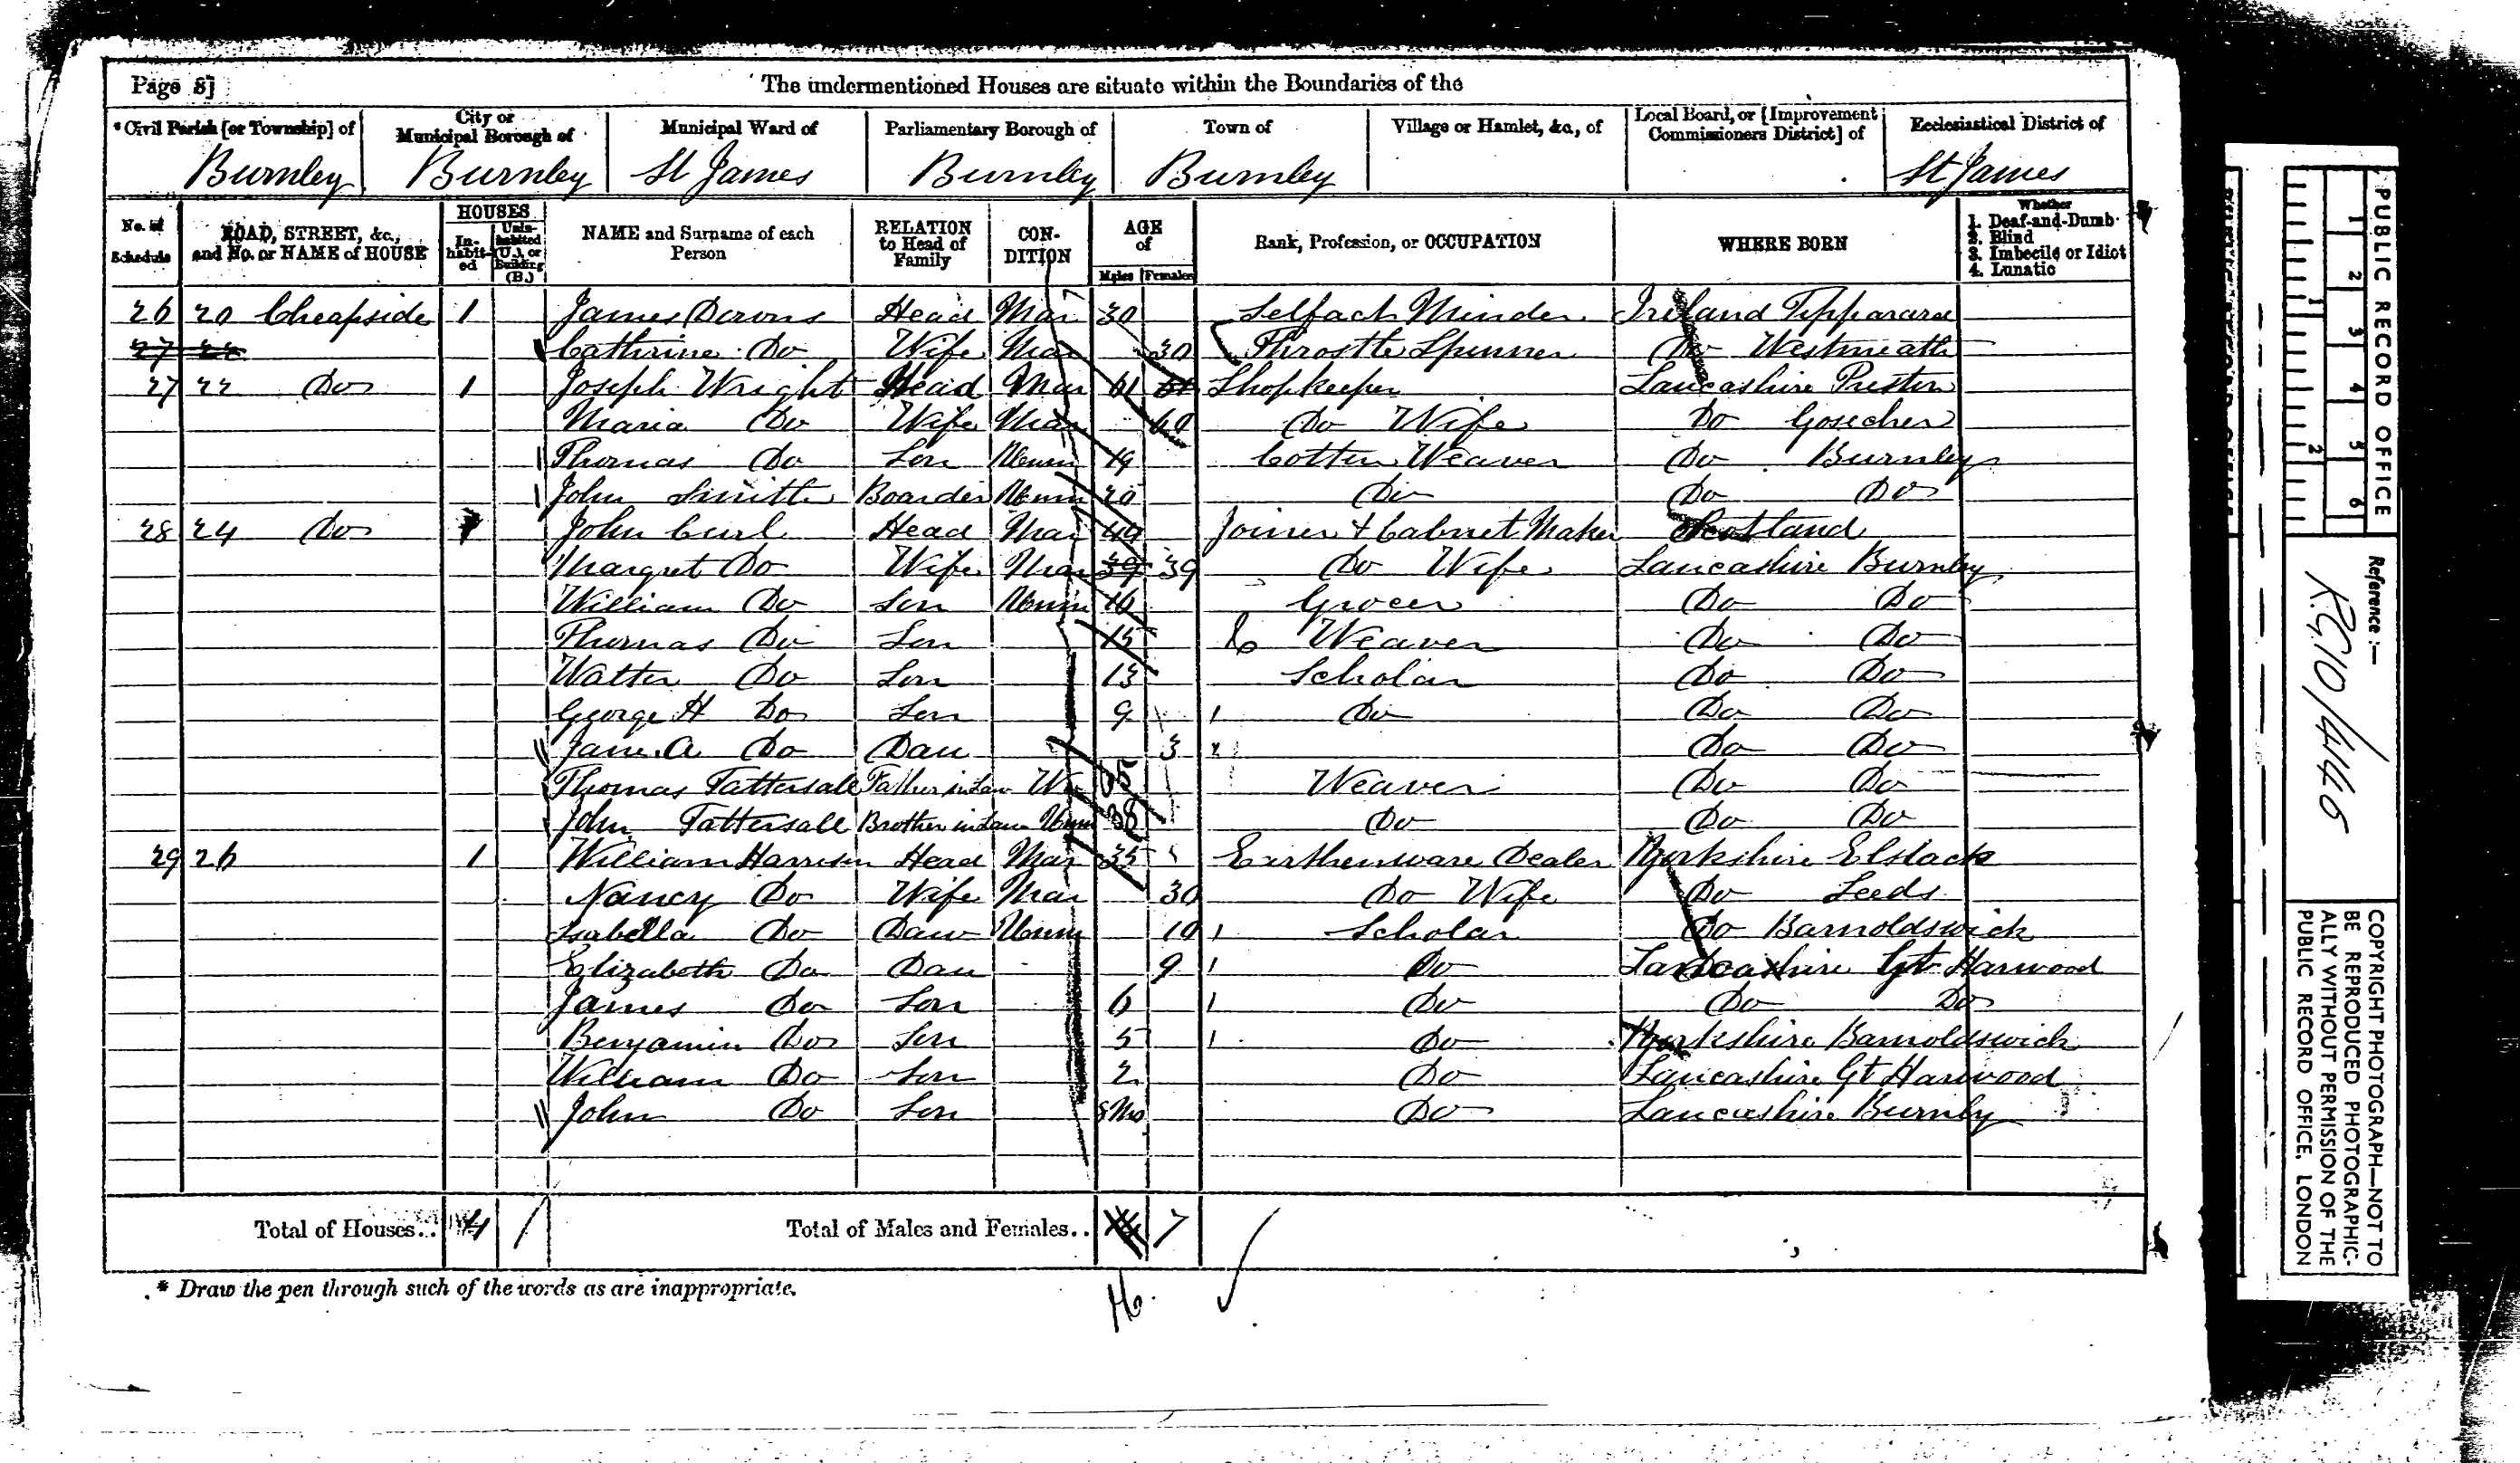 Page 8]
The undermentioned Houses are situate within the Boundaries of the
* Civil Parish [or Township] of | City or Municipal Borough of | Municipal Ward of | Parliamentary Borough of | Town of | Village or Hamlet, &c., of | Local Board, or [Improvement Commissioners District] of | Ecclesiastical District of
Burnley | Burnley | St James | Burnley | Burnley | St James
No. of Schedule | ROAD, STREET, &c., and No. or NAME of HOUSE | HOUSES Inhabited Uninhabited (U.), or Building (B.) | NAME and Surname of each Person | RELATION to Head of Family | CONDITION | AGE of Males Females | Rank, Profession, or OCCUPATION | WHERE BORN | Whether 1. Deaf-and-Dumb 2. Blind 3. Imbecile or Idiot 4. Lunatic
26 20 Cheapside 1 James Head Mar 30 Selfact Minder Ireland Tipparara
27 22 Cathrine Do Wife Mar 30 Throstle Spinner Do Westmeath
27 22 Do 1 Joseph Wright Head Mar 61 61 Shopkeeper Lancashire Preston
Maria Do Wife Mar 60 Do Wife Do
Thomas Do Son Unm 19 Cotton Weaver Do Burnley
John Smith Boarder Unm 20 Do Do Do
28 24 Do 1 John Curl Head Mar 49 Joiner & Cabinet Maker Scotland
Margret Do Wife Mar 39 39 Do Wife Lancashire Burnley
William Do Son Unm 16 Grocer Do Do
Thomas Do Son 15 Weaver Do Do
Walter Do Son 13 Scholar Do Do
George H Do Son 9 Do Do Do
Jane A Do Dau 3 Do Do
Thomas Tattersall Father in Law Weaver Do Do
John Tattersall Brother in Law Unm 38 Do Do Do
29 26 1 William Harrison Head Mar 35 Earthenware Dealer Yorkshire Elslack
Nancy Do Wife Mar 30 Do Wife Do Leeds
Isabella Do Daw Unm 10 Scholar Do Barnoldswick
Elizabeth Do Dau 9 Do Lancashire Gt Harwood
James Do Son 6 Do Do Do
Benjamin Do Son 5 Do Yorkshire Barnoldswick
William Do Son 2 Do Lancashire Gt Harwood
John Do Son 8 Mo Do Lancashire Burnley
Total of Houses.. 4 Total of Males and Females.. 7
16
* Draw the pen through such of the words as are inappropriate.
PUBLIC RECORD OFFICE
1 2 3 4 5 6
1 2
Reference :—
R.G.10/4146
COPYRIGHT PHOTOGRAPH—NOT TO
BE REPRODUCED PHOTOGRAPHIC-
ALLY WITHOUT PERMISSION OF THE
PUBLIC RECORD OFFICE, LONDON